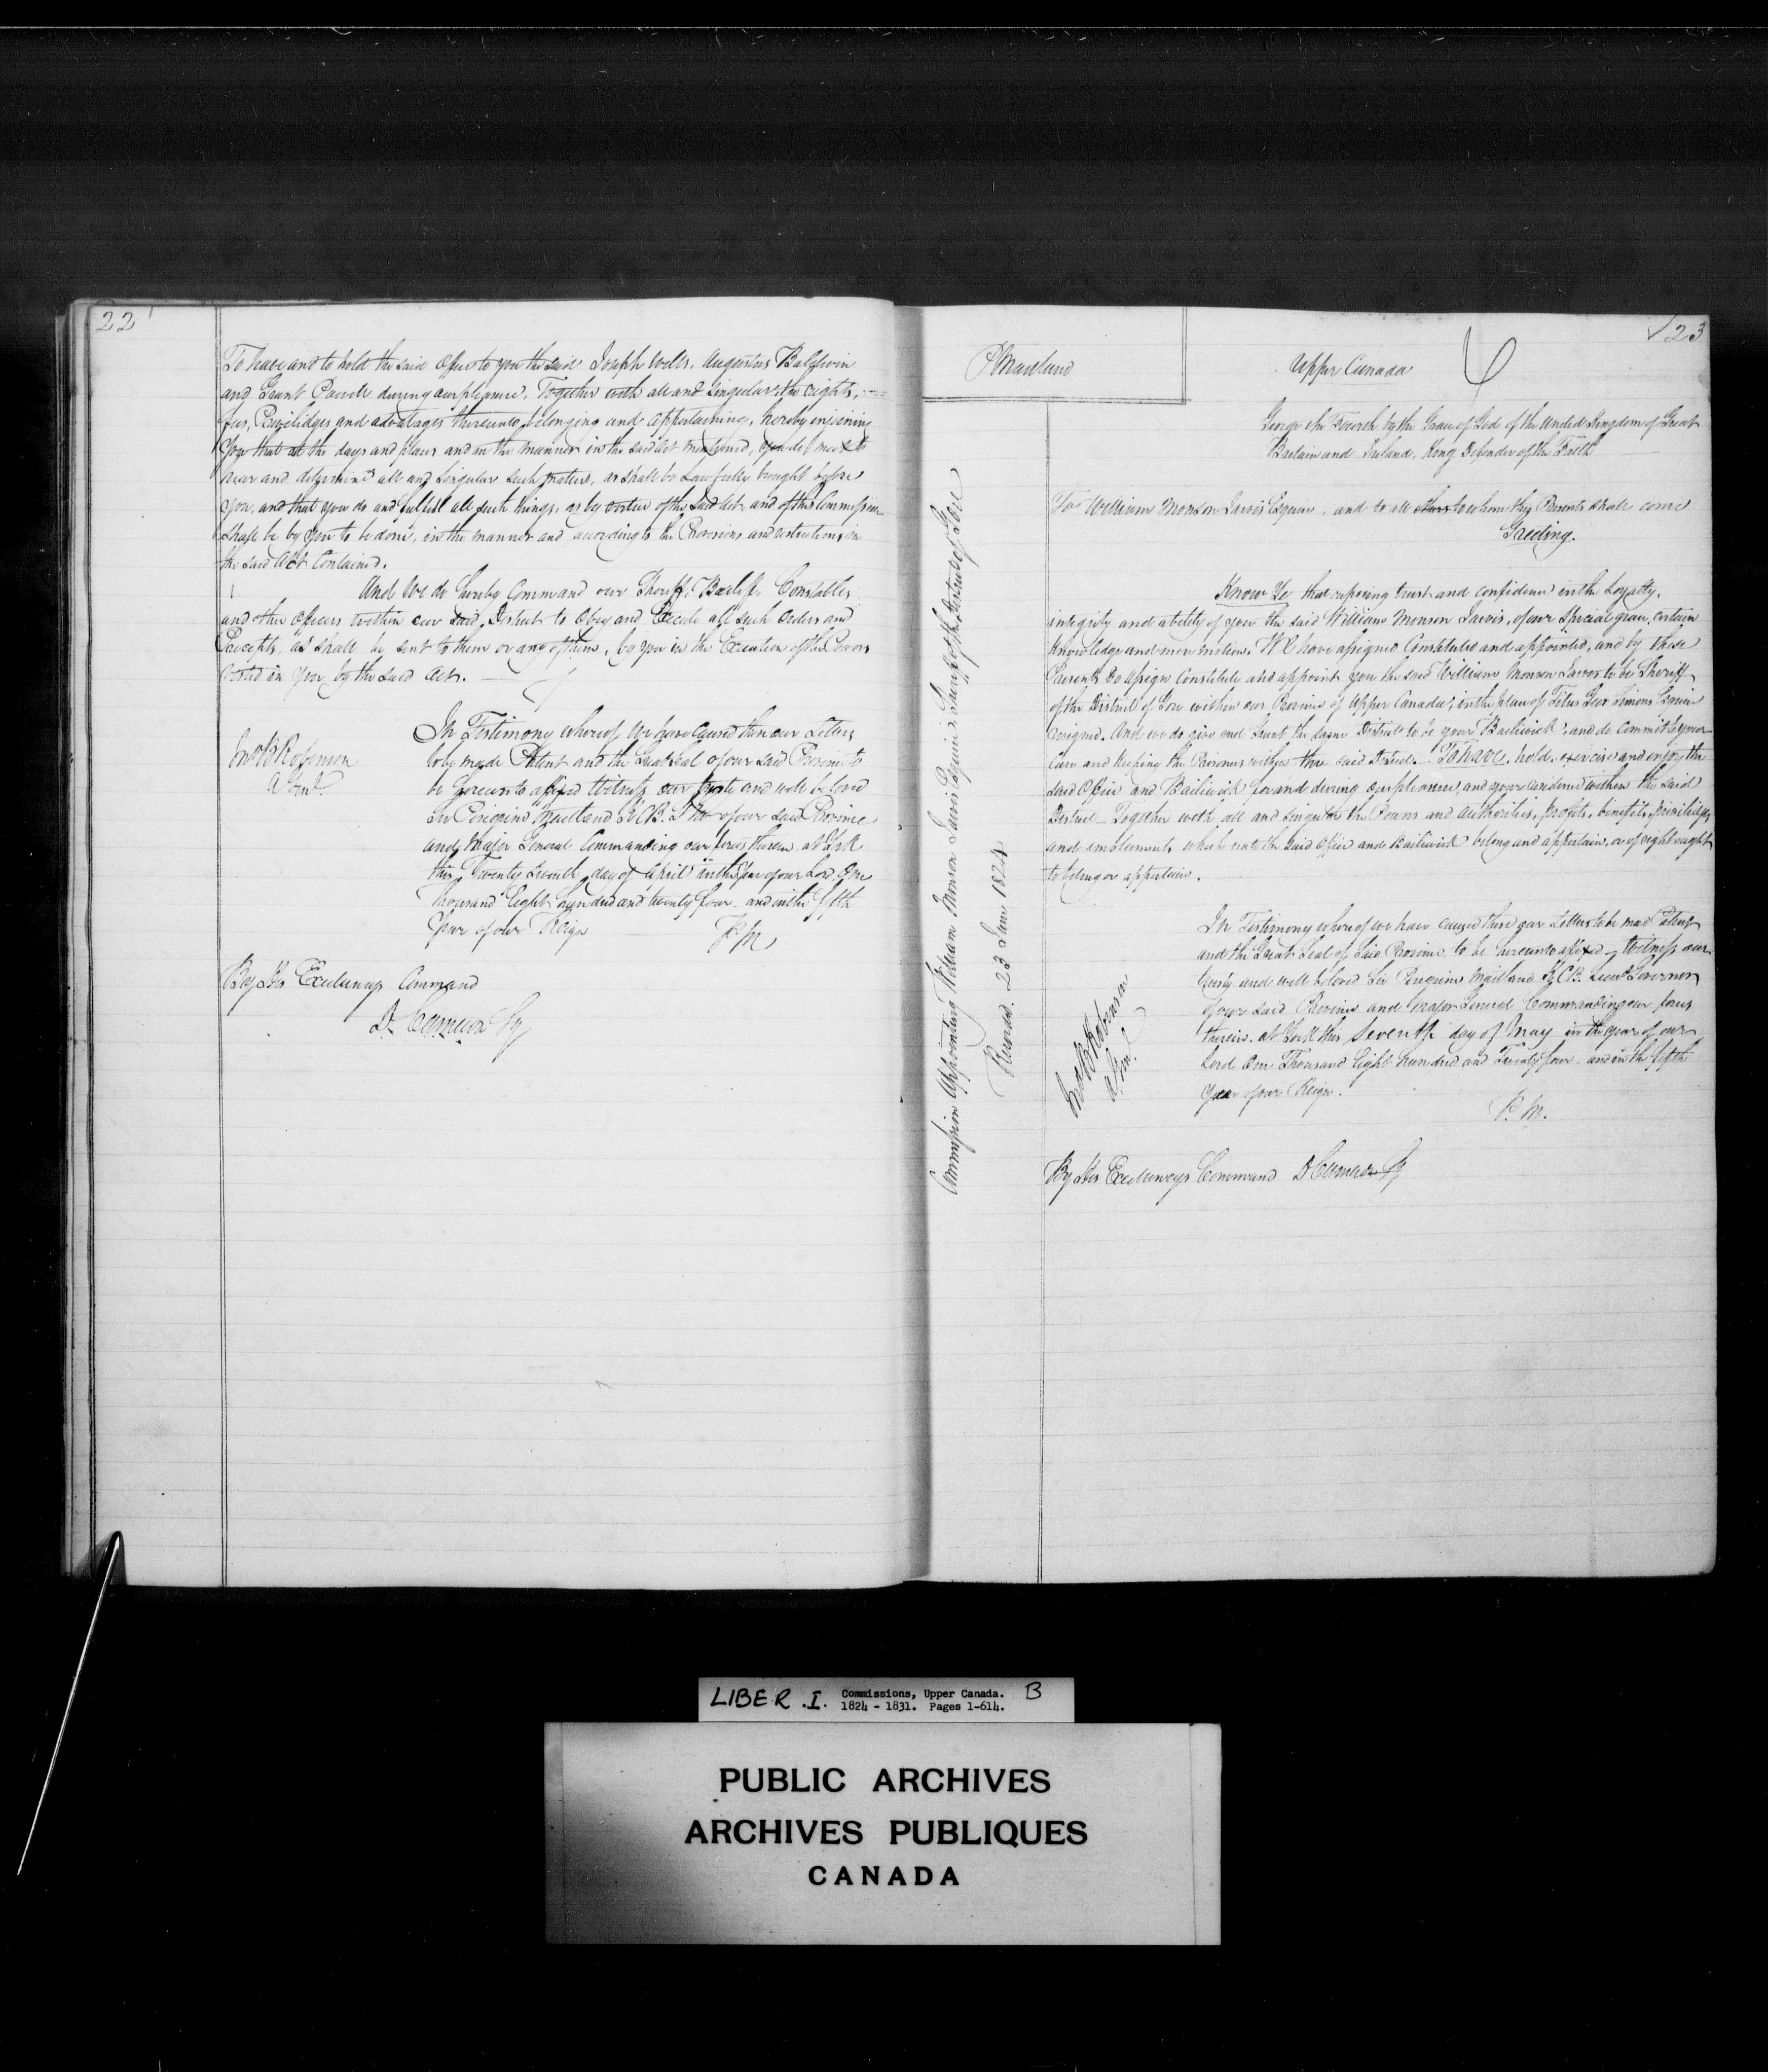 22
To have and to hold the said Office to you the said Joseph Wells, Augustus Baldwin
and Grant Powell during our pleasure. Together with all and Singular the rights,
fees, Privilidges and advatages thereunto belonging and appertaining, hereby injoining
you that at the days and places and in the manner in the said Act mentioned, you do meet to
hear and determine all and Singular such matters, as shall be Lawfully brought before
you, and that you do and fulfill all such things, as by virtue of the said Act and of this Commission
shall be by you to be done, in the manner and according to the Provisions and restrictions in
the said Act Contained.
And We do hereby Command our Sheriff, Bailiffs Constables
and other Officers within our said District to Obey and Execute all such Orders and
Precepts, as shall be sent to them or any of them, by you in the Execution of the Powers
Vested in you by the said Act.
In Testimony whereof We have Caused these our Letters
to be made Patent and the Great Seal of our said Province to
be hereunto affixed Witness our trusty and well beloved
Sir Peregrine Maitland K.C.B. of our said Province
and Major General Commanding our forces therein At York
this Twenty day of April in the Year of our Lord One
Thousand Eight hundred and twenty four and in the fifth
Year of our Reign
P. M
Jno B Robinson
A. Genl.
By His Excellencys Command
D. Cameron Sy
P Maitland
Upper Canada
23
George the Fourth by the Grace of God of the United Kingdom of Great
Britain and Ireland, King Defender of the Faith
To William Monson Jarvis Esquire, and to all others to whom these Presents shall come
Greeting.
Know Ye that reposing trust and confidence in the Loyalty,
integrity and ability of you the said William Monson Jarvis, of our Special grace, certain
knowledge and mere motion, We have assigned Constituted and appointed, and by these
Presents Do assign Constitute and appoint you the said William Monson Jarvis to be Sheriff
of the District of Gore within our Province of Upper Canada, in the place of Titus Geer Simons Esquire
resigned. And we do give and Grant the same District to be your Bailiwick, and do Commit to your
Care and keeping the Prisoners within the said District. To have, hold, exercise and enjoy the
said Office and Bailiwick for and during our pleasure, and your residence within the said
District Together with all and singular the Powers and Authorities, profits, benefits, privilidges
and emoluments which unto the said Office and Bailiwick belong and appertain, or of right ought
to belong or appertain.
In Testimony whereof we have caused these our Letters to be made Patent
and the Great Seal of said Province to be hereunto affixed Witness our
trusty and well beloved Sir Peregrine Maitland K.C.B. Lieut Governor
of our said Province and Major General Commanding our forces
therein. At York this Seventh day of May in the year of our
Lord One Thousand Eight hundred and Twenty four and in the fifth
year of our Reign.
P. M.
Jno B Robinson
A. Gen.
By His Excellencys Command D Cameron Sy
Commission Appointing William Monson Jarvis Esquire Sheriff of the District of Gore
Record. 23 June 1824
LIBER .I. Commissions, Upper Canada. B
1824 - 1831. Pages 1-614.
PUBLIC ARCHIVES
ARCHIVES PUBLIQUES
CANADA